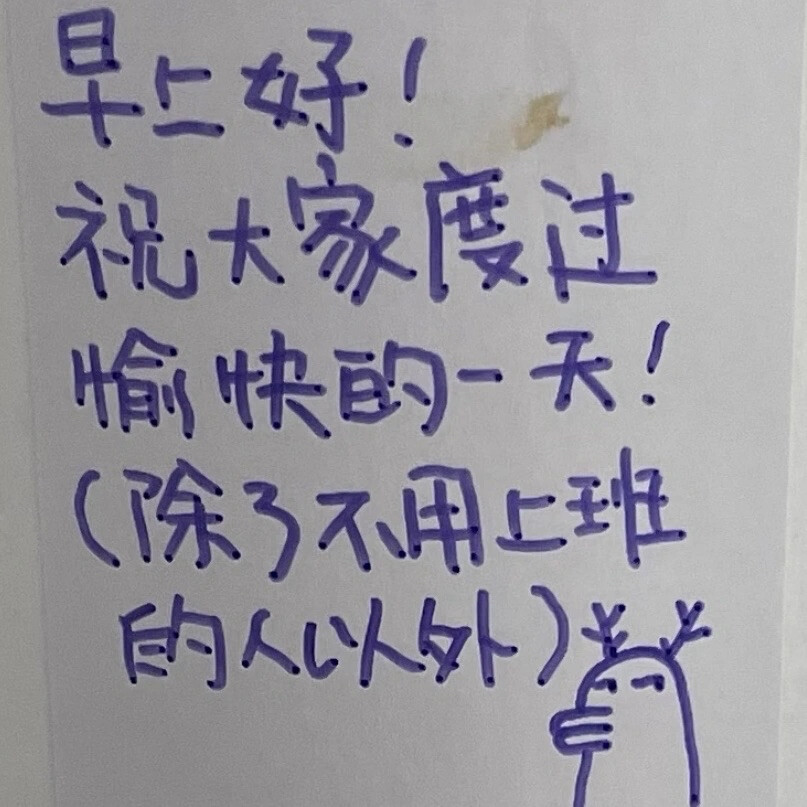 早上好！
祝大家度过
愉快的一天！
（除了不用上班
的人以外）